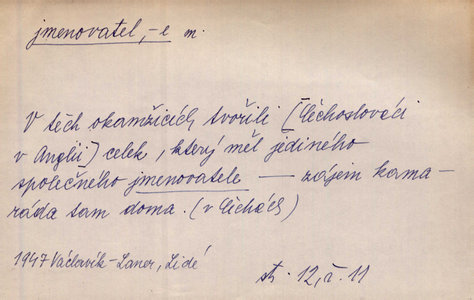 jmenovatel, -e m.
V těch okamžicích tvořili [Čechoslováci
v Anglii] celek, který měl jediného
společného jmenovatele — zájem kama-
ráda tam doma. (v Čechách)
1947 Václavík-Laner, Lidé
str. 12, ř. 11